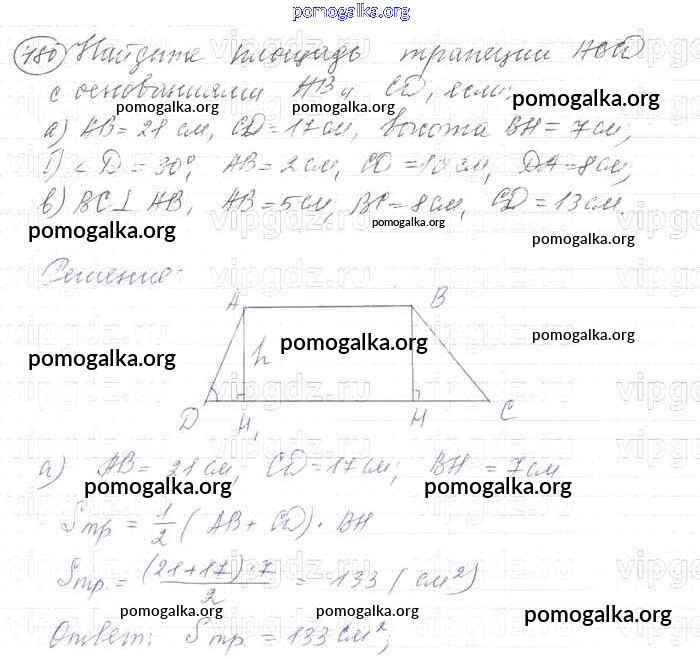 pomogalka.org
480 Найдите площадь трапеции ABCD
с основаниями AB и CD, если:
pomogalka.org pomogalka.org pomogalka.org
а) AB = 21 см, CD = 17 см, высота BH = 7 см;
б) ∠D = 30°, AB = 2 см, CD = 10 см, DA = 8 см;
в) BC ⊥ AB, AB = 5 см, BC = 8 см, CD = 13 см.
pomogalka.org pomogalka.org pomogalka.org
Решение:
A B
pomogalka.org pomogalka.org pomogalka.org
h
D H₁ H C
а) AB = 21 см; CD = 17 см; BH = 7 см
pomogalka.org pomogalka.org
Sтр. = 1/2 (AB + CD) · BH
Sтр. = (21+17)·7/2 = 133 (см²)
pomogalka.org pomogalka.org pomogalka.org
Ответ: Sтр. = 133 см²;